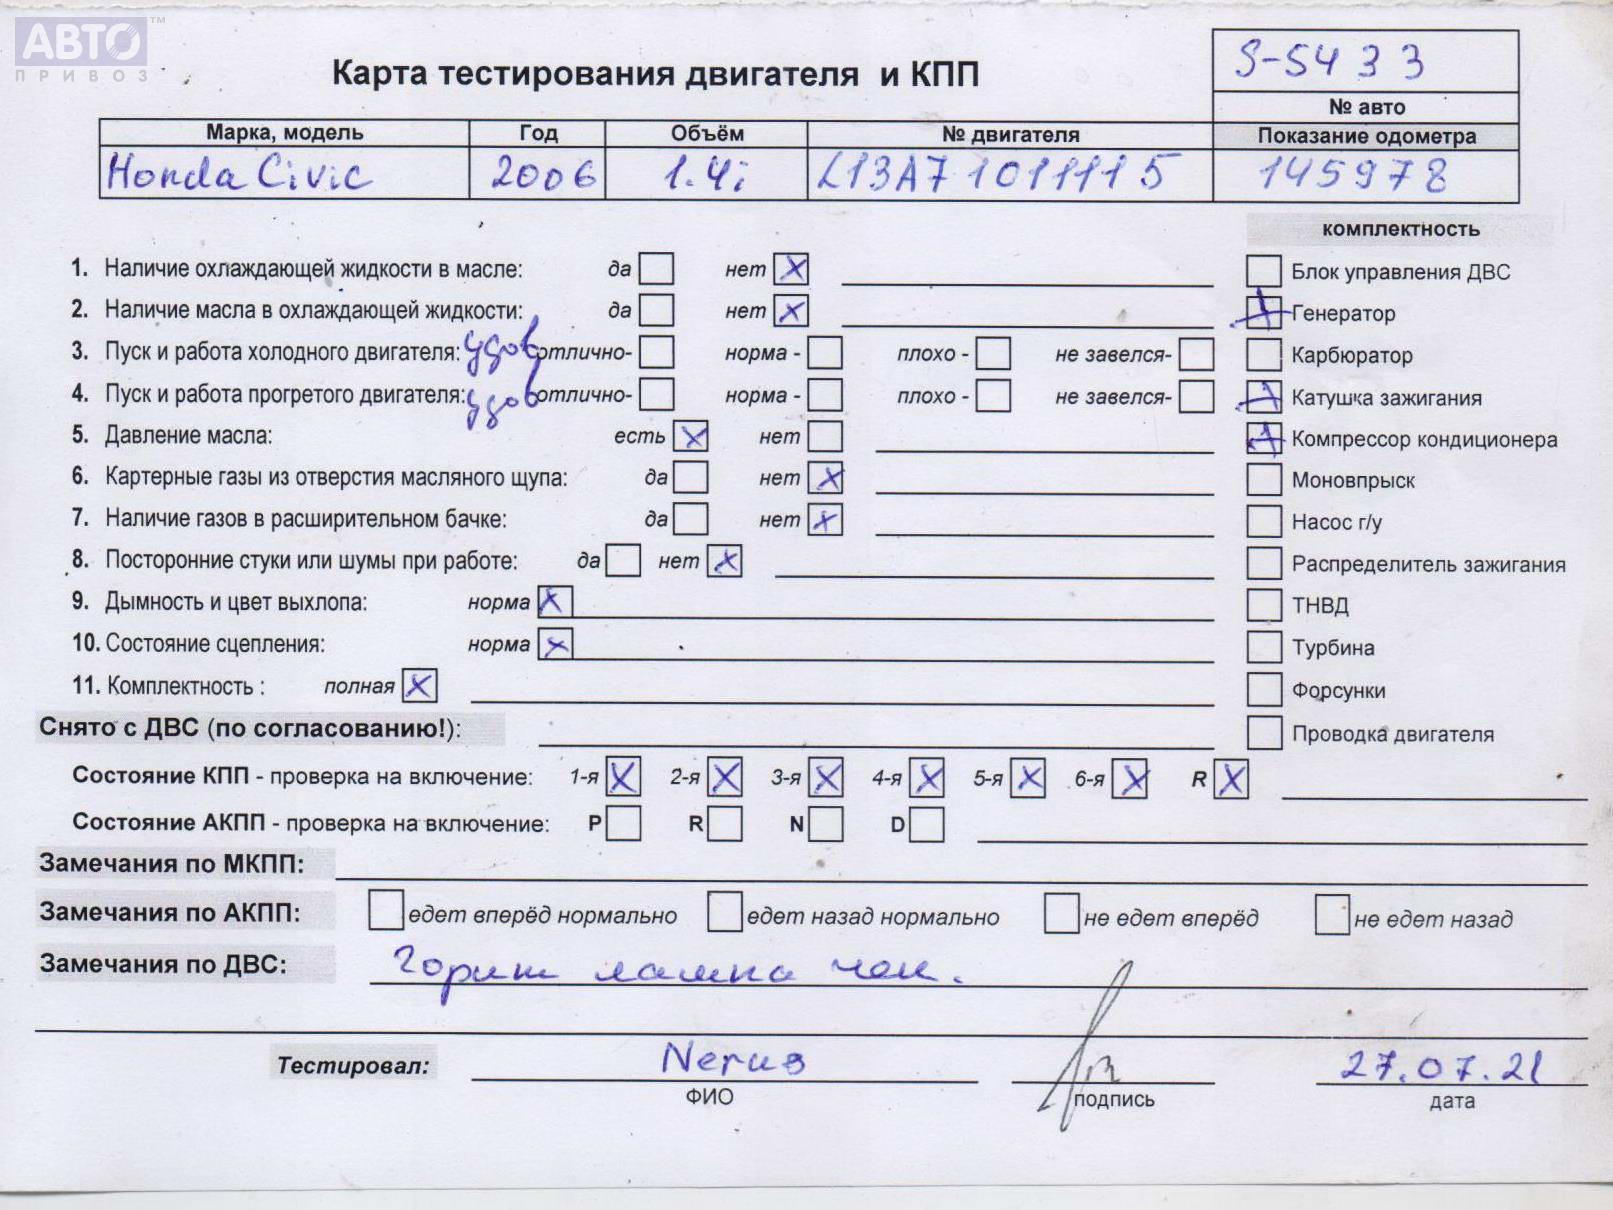 АВТО ™
ПРИВОЗ
Карта тестирования двигателя и КПП
S-5433
№ авто
Марка, модель Год Объём № двигателя Показание одометра
Honda Civic 2006 1.4i L13A7 1011115 145978
комплектность
1. Наличие охлаждающей жидкости в масле: да нет X Блок управления ДВС
2. Наличие масла в охлаждающей жидкости: да нет X Генератор
3. Пуск и работа холодного двигателя: удов отлично- норма - плохо - не завелся- Карбюратор
4. Пуск и работа прогретого двигателя: удов отлично- норма - плохо - не завелся- Катушка зажигания
5. Давление масла: есть X нет Компрессор кондиционера
6. Картерные газы из отверстия масляного щупа: да нет X Моновпрыск
7. Наличие газов в расширительном бачке: да нет X Насос г/у
8. Посторонние стуки или шумы при работе: да нет X Распределитель зажигания
9. Дымность и цвет выхлопа: норма X ТНВД
10. Состояние сцепления: норма X Турбина
11. Комплектность : полная X Форсунки
Снято с ДВС (по согласованию!): Проводка двигателя
Состояние КПП - проверка на включение: 1-я X 2-я X 3-я X 4-я X 5-я X 6-я X R X
Состояние АКПП - проверка на включение: P R N D
Замечания по МКПП:
Замечания по АКПП: едет вперёд нормально едет назад нормально не едет вперёд не едет назад
Замечания по ДВС: Горит лампа чек.
Тестировал: 27.07.21
ФИО подпись дата